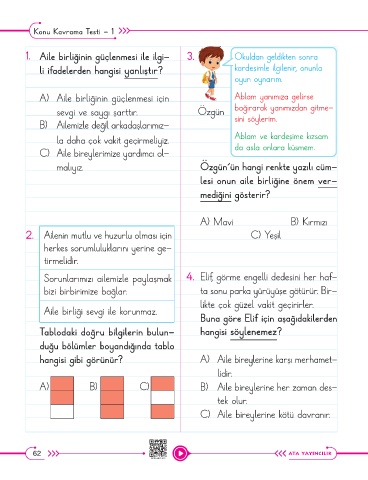 Konu Kavrama Testi - 1
1. Aile birliğinin güçlenmesi ile ilgi-
li ifadelerden hangisi yanlıştır?
A) Aile birliğinin güçlenmesi için
sevgi ve saygı şarttır.
B) Ailemizle değil arkadaşlarımız-
la daha çok vakit geçirmeliyiz.
C) Aile bireylerimize yardımcı ol-
malıyız.
2. Ailenin mutlu ve huzurlu olması için
herkes sorumluluklarını yerine ge-
tirmelidir.
Sorunlarımızı ailemizle paylaşmak
bizi birbirimize bağlar.
Aile birliği sevgi ile korunmaz.
Tablodaki doğru bilgilerin bulun-
duğu bölümler boyandığında tablo
hangisi gibi görünür?
A) B) C)
3. Okuldan geldikten sonra
kardeşimle ilgilenir, onunla
oyun oynarım.
Ablam yanımıza gelirse
bağırarak yanımızdan gitme-
sini söylerim.
Ablam ve kardeşime kızsam
da asla onlara küsmem.
Özgün
Özgün'ün hangi renkte yazılı cüm-
lesi onun aile birliğine önem ver-
mediğini gösterir?
A) Mavi B) Kırmızı
C) Yeşil
4. Elif, görme engelli dedesini her haf-
ta sonu parka yürüyüşe götürür. Bir-
likte çok güzel vakit geçirirler.
Buna göre Elif için aşağıdakilerden
hangisi söylenemez?
A) Aile bireylerine karşı merhamet-
lidir.
B) Aile bireylerine her zaman des-
tek olur.
C) Aile bireylerine kötü davranır.
62
ATA YAYINCILIK